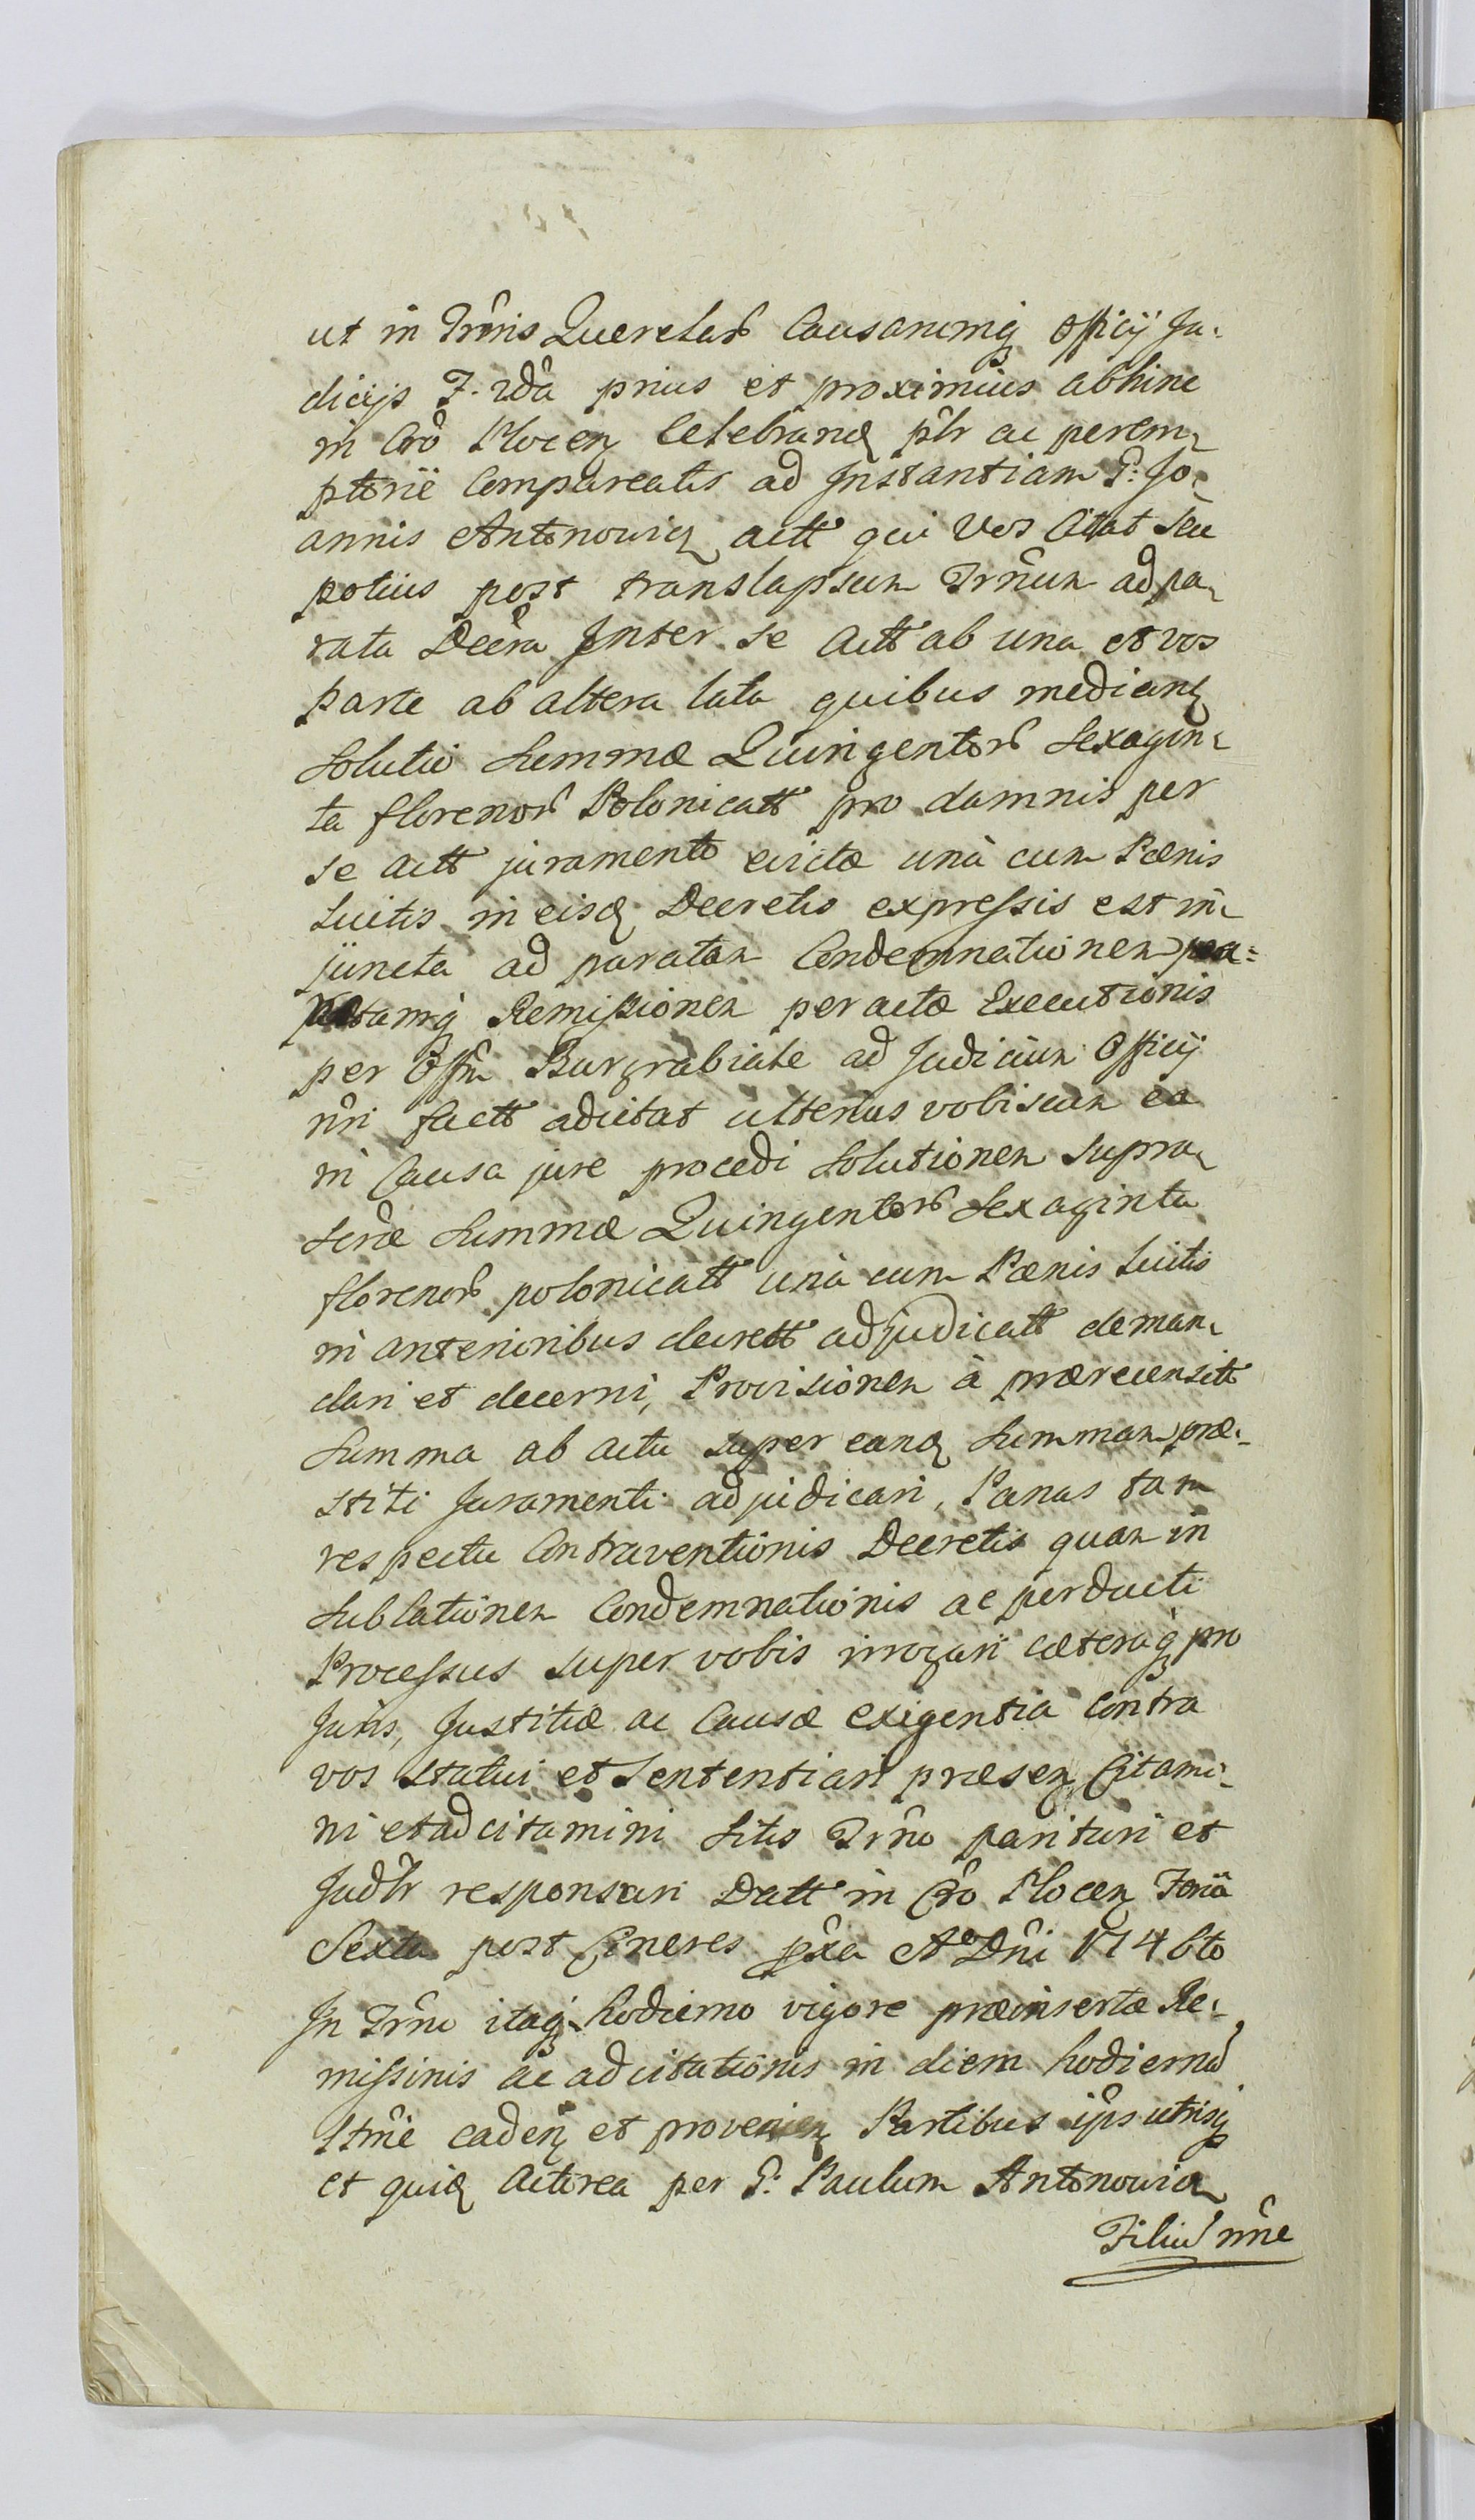 ut in Trnis Querelarũ Causarumq Officÿ Ju-
dicÿs F. 2da prius et proximius abhinc
in Cro Plocen Celebrand plr ac perem-
ptorie Compareatis ad Instantiam G: Jo-
annis Antonowicz actt qui Vos Citat seu
potius post translapsum Trnum ad pa-
rata Decra Inter se Actt ab una et vos
parte ab altera lata quibus mediang
Solutio Summæ Quingentorũ Sexagin-
ta florenorũ Polonicatt pro damnis per
se actt juramento evictæ unà cum Pænis
Luitis in eisd Decretis expressis est in-
juncta ad paratam Condemnationem pa=
ratamq Remissionem peractæ Executionis
per Offm Burgrabiale ad Judicium Officÿ
nri factt adcitat ulterius vobiscum ea
in Causa jure procedi Solutionem supra-
scræ Summæ Quingentorũ Sexaginta
florenorũ polonicatt unà cum Pænis Luitis
in anterioribus decrett adjudicatt deman-
dari et decerni, Provisionem à præreensita
Summa ab actu super eand Summam præ-
stiti Juramenti adjudicari, Pænas tam
respectu Contraventionis Decretis quam in
Sublationem Condemnationis ac perducti
Processus super vobis irrogari cæteraq pro
Juris, Justitiæ ac Causæ exigentia Contra
vos statui et Sententiari præsen Citami-
ni et adcitamini Sitis Trno parituri et
Judlr responsuri Datt in Cro Plocen Feria
Sexta post Cineres pxa Ao Dni 1746to
In Trno itaq hodierno vigore præinsertæ Re-
missinis ac adcitationis in diem hodiernũ
Itrie caden et provenien Partibus ipsis utrisq
et quid Actorea per G: Paulum Antonowicz
Filiũ nne